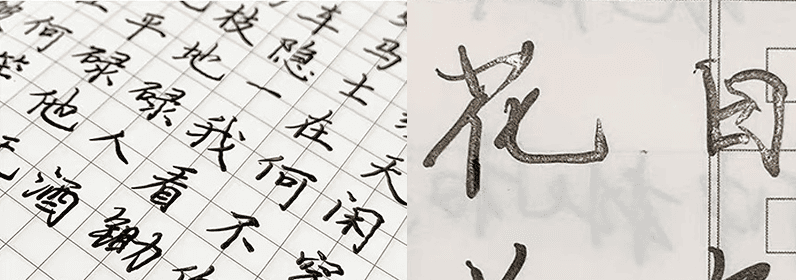 车马
枝隐士
平地一在天
何碌碌我何闲
笑他人看不穿
无酒锄
花
日